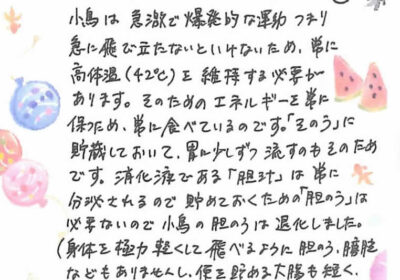 小鳥は 急激で爆発的な運動 つまり
急に飛び立たないといけないため、常に
高体温(42℃)を 維持する必要が
あります。そのためのエネルギーを常に
保つため、常に食べているのです。「そのう」に
貯蔵しておいて、胃に少しずつ 流すのもそのため
です。消化液である「胆汁」は 常に
分泌されるので 貯めておくための「胆のう」は
必要ないので 小鳥の胆のうは退化しました。
(身体を極力 軽くして 飛べるように胆のう、膀胱
などもありませんし、便を貯める大腸も短く、